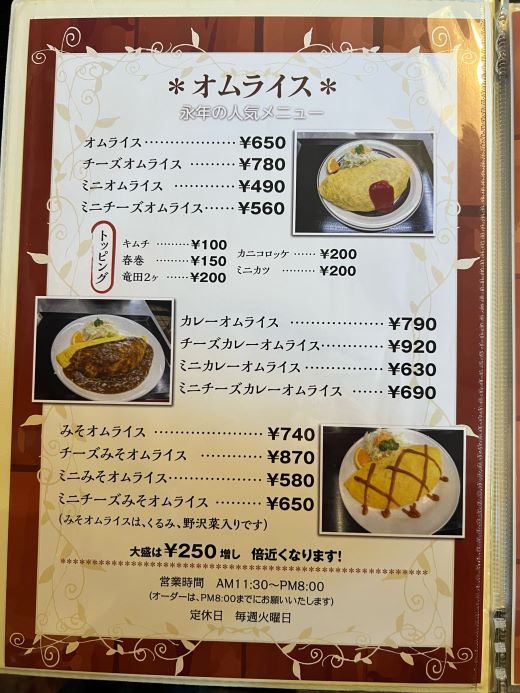 ＊オムライス＊
永年の人気メニュー
オムライス………………¥650
チーズオムライス………¥780
ミニオムライス…………¥490
ミニチーズオムライス……¥560
トッピング
キムチ………¥100
春巻………¥150
竜田2ヶ……¥200
カニコロッケ……¥200
ミニカツ………¥200
カレーオムライス………………¥790
チーズカレーオムライス…………¥920
ミニカレーオムライス……………¥630
ミニチーズカレーオムライス……¥690
みそオムライス…………………¥740
チーズみそオムライス…………¥870
ミニみそオムライス……………¥580
ミニチーズみそオムライス……¥650
(みそオムライスは、くるみ、野沢菜入りです)
大盛は¥250増し 倍近くなります!
営業時間 AM11:30～PM8:00
(オーダーは、PM8:00までにお願いいたします)
定休日 毎週火曜日